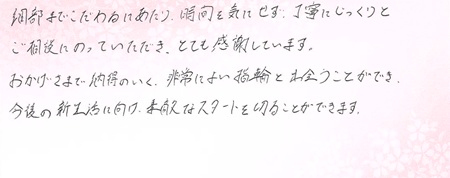 細部までこだわるにあたり、時間を気にせず、丁寧にじっくりと
ご相談にのっていただき、とても感謝しています。
おかげさまで納得のいく、非常によい指輪と出会うことができ、
今後の新生活に向け、素敵なスタートを切ることができます。